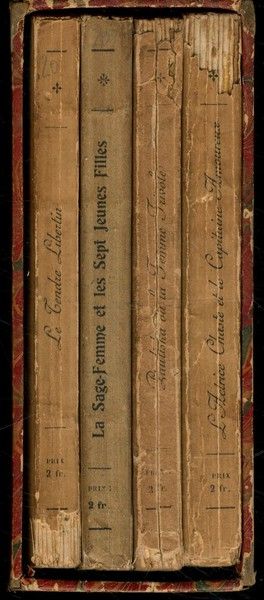 Le Tendre Libertin
PRIX
2 fr.
La Sage-Femme et les Sept Jeunes Filles
PRIX :
2 fr.
ou la Femme
PRIX
2 fr.
L'Actrice Chasté et le Capitaine Amoureux
PRIX
2 fr.